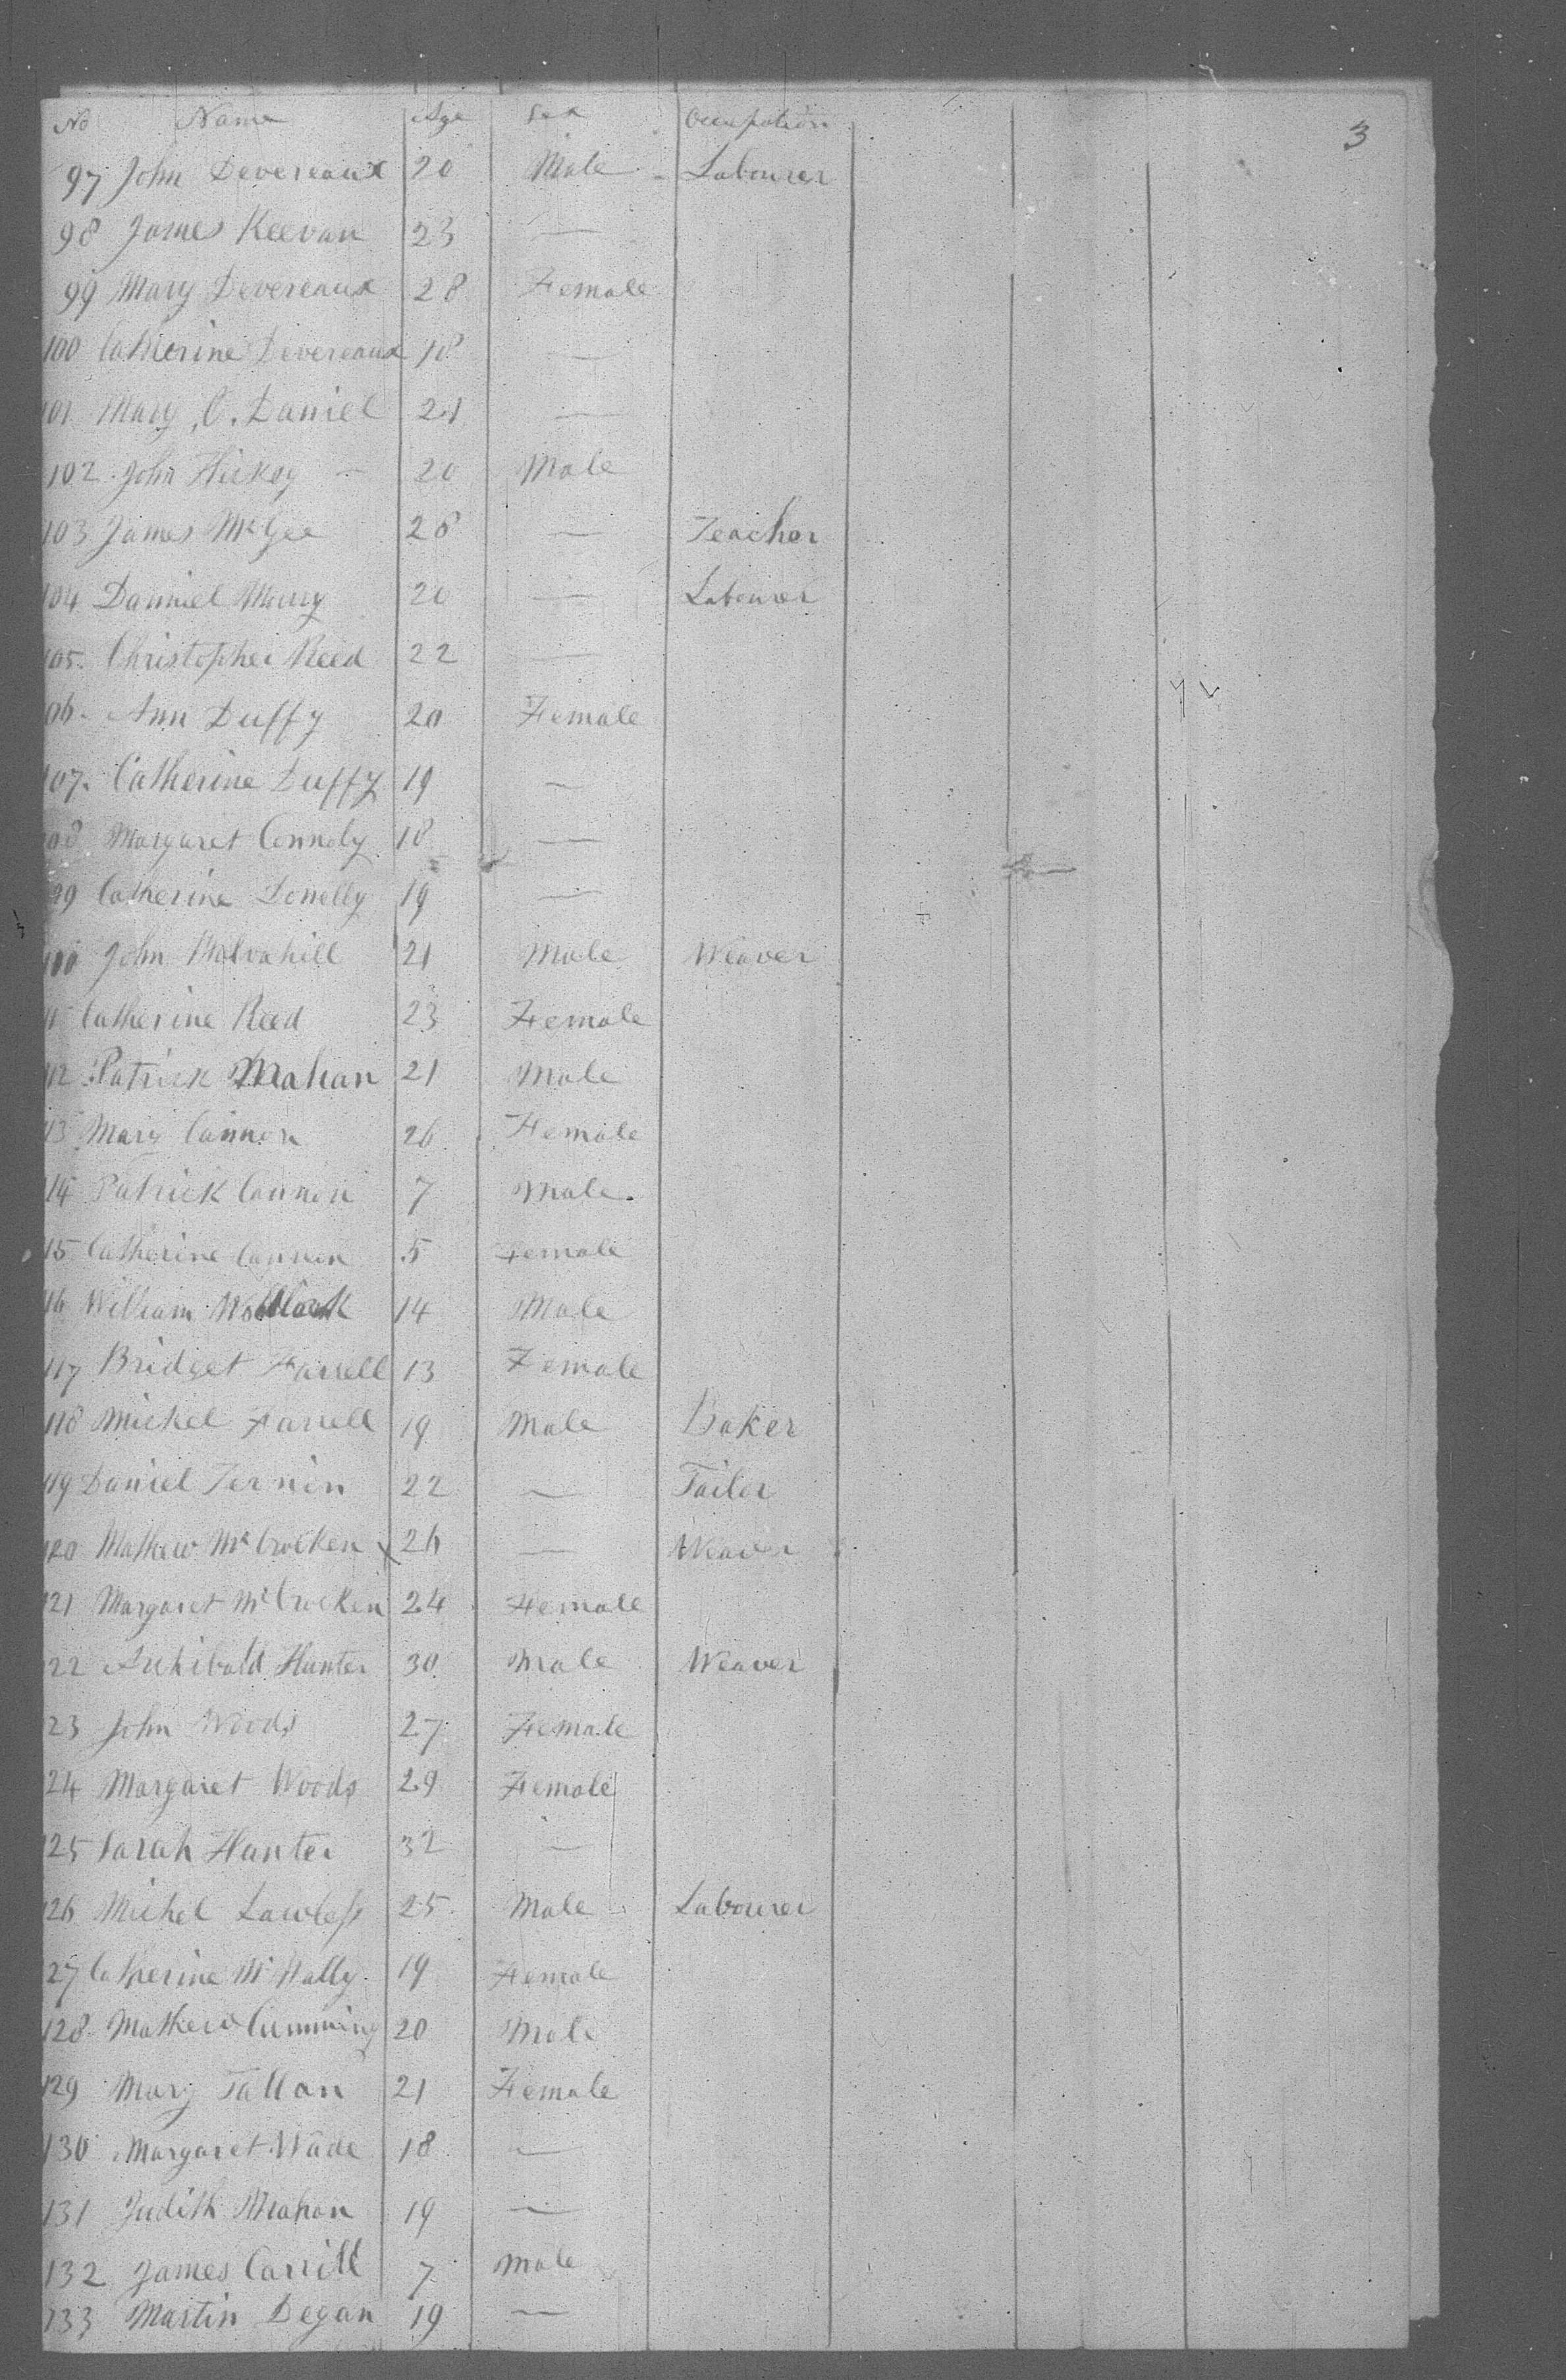 3
No Name Age Sex Occupation
97 John Devereaux 20 Male Labourer
98 James Keevan 23 —
99 Mary Devereaux 28 Female
100 Catherine Devereaux 18 —
101 Mary O. Daniel 21 —
102 John Hickey — 20 Male
103 James McGee 28 — Teacher
104 Danniel 20 — Labourer
105. Christopher Reed 22 —
06. Ann Duffy 20 Female
107. Catherine Duffy 19 —
08 Margaret Connoly 18 —
09 Catherine Donelly 19 —
110 John Mulvahill 21 Male Weaver
11 Catherine Reed 23 Female
112 Patrick Mahan 21 Male
13 Mary Cannon 26 Female
14 Patrick Cannon 7 Male
15 Catherine Cannon 5 Female
16 William 14 Male
117 Bridget Farrell 13 Female
118 Mickel Farrell 19 Male Baker
119 Daniel Ternin 22 — Tailer
120 Mathew McCrocken 26 — Weaver
121 Margaret McCrocken 24 Female
22 Archibald Hunter 30 Male Weaver
23 John Woods 27 Female
24 Margaret Woods 29 Female
125 Sarah Hunter 32 —
126 Michel Lawless 25 Male Labourer
27 Catherine McNally 19 Female
128 Mathew Cumming 20 Male
129 Mary Tallon 21 Female
130 Margaret Wade 18 —
131 Judith Mahon 19 —
132 James Carrill 7 Male
133 Martin Degan 19 —